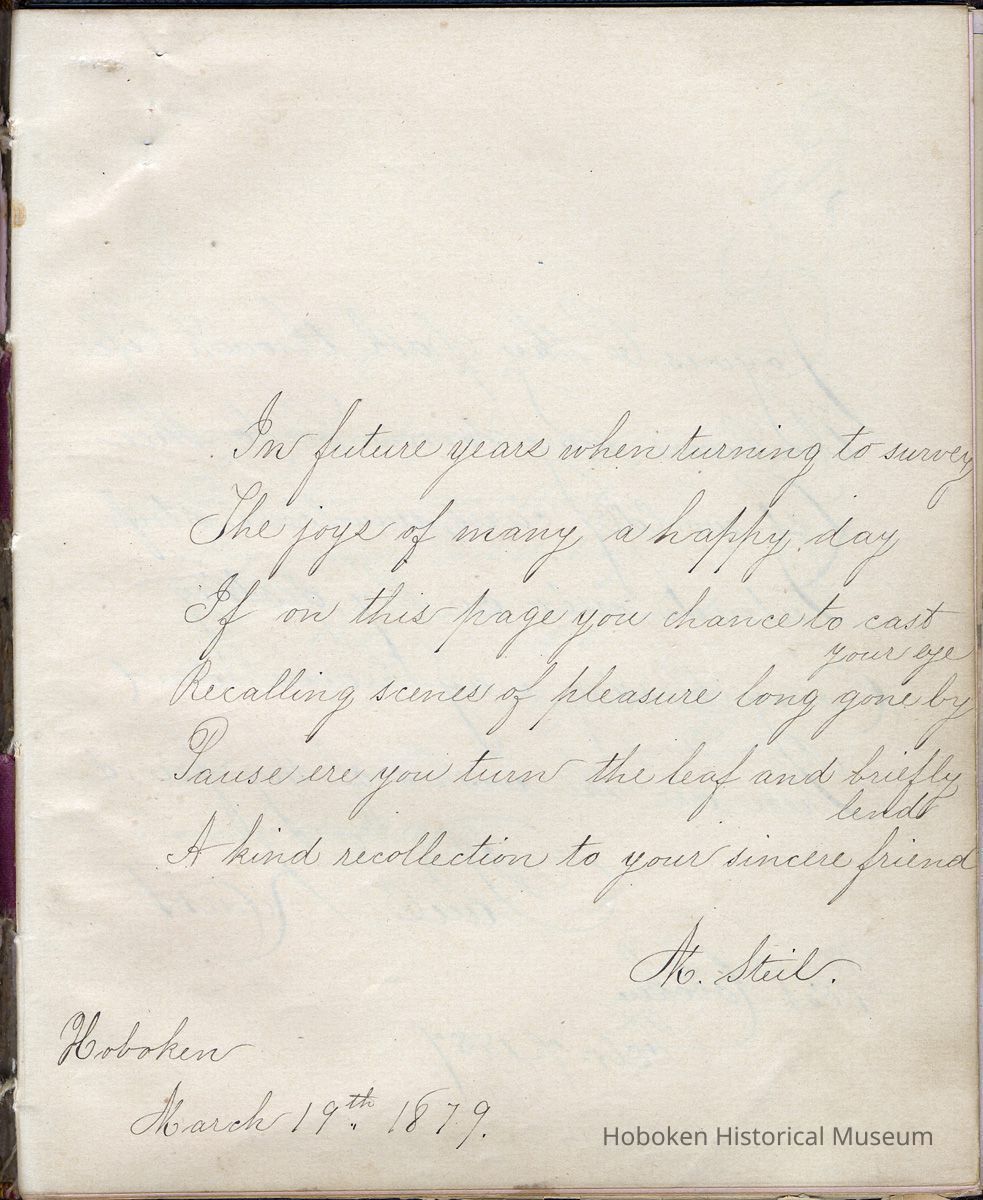 In future years when turning to survey
The joys of many a happy day
If on this page you chance to cast
your eye
Recalling scenes of pleasure long gone by
Pause ere you turn the leaf and briefly
lend
A kind recollection to your sincere friend
M. Steil.
Hoboken
March 19th. 1879.
Hoboken Historical Museum